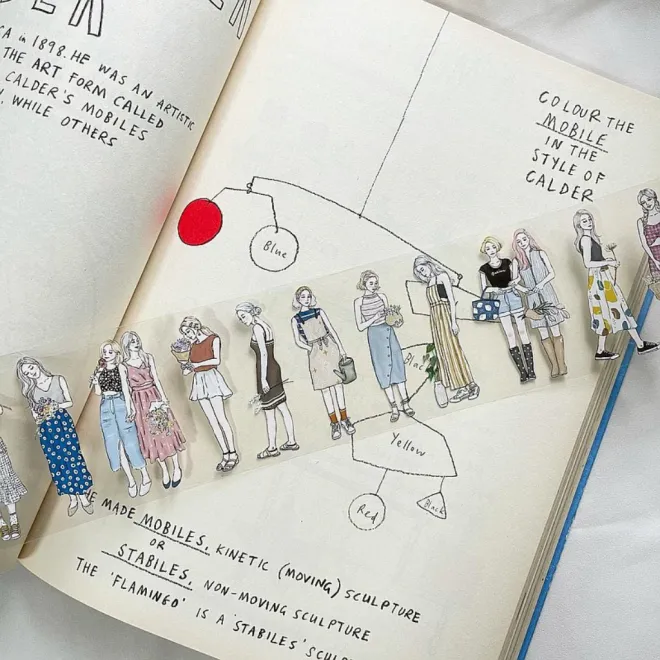 in 1898. HE WAS AN ARTISTIC
THE ART FORM CALLED
CALDER'S MOBILES
WHILE OTHERS
COLOUR THE
MOBILE
IN THE
STYLE OF
CALDER
Blue
Yellow
Red
Black
MADE MOBILES, KINETIC (MOVING) SCULPTURE
OR
STABILES, NON-MOVING SCULPTURE
THE 'FLAMINGO' IS A 'STABILES'